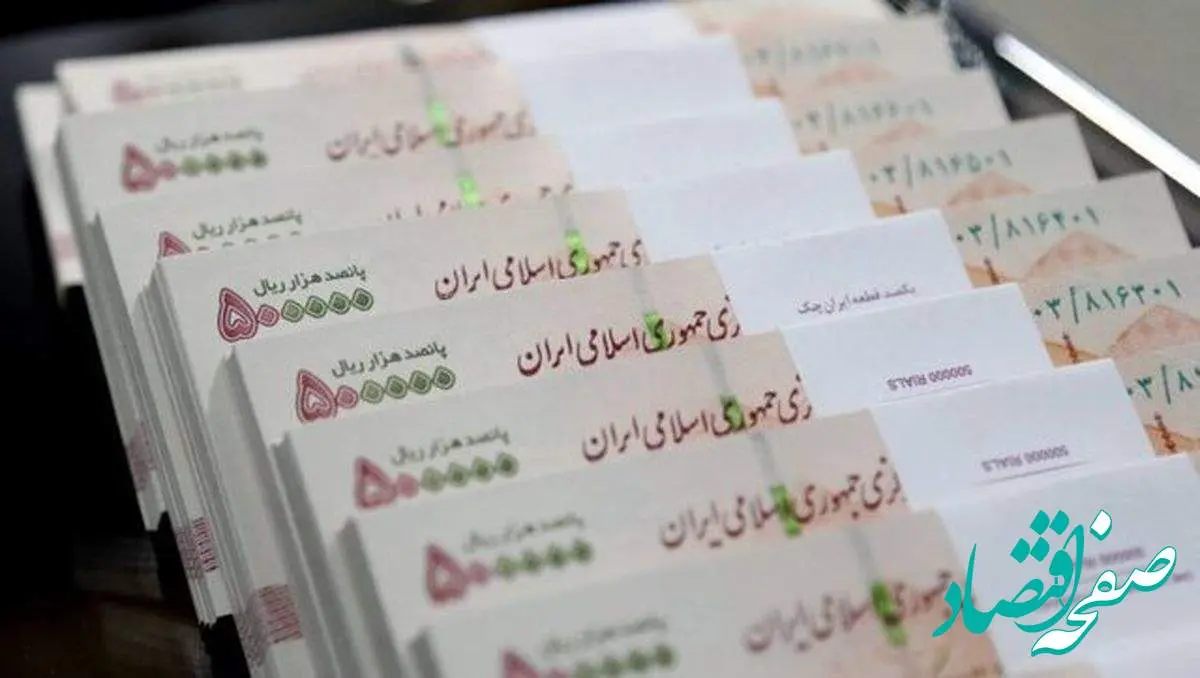 پانصد هزار ریال
۵۰۰۰۰۰
زی جمهوری اسلامی ایران
۰۳/۸۱۶۶۰۱
پانصد هزار ریال
۰۳/۸۱۶۵۰۱
پانصد هزار ریال
۵۰۰۰۰۰
زی جمهوری اسلامی ایران
یکصد قطعه ایران چک
۰۳/۸۱۶۴۰۱
پانصد هزار ریال
۵۰۰۰۰۰
زی جمهوری اسلامی ایران
500000 RIALS
۰۳/۸۱۶۳۰۱
پانصد هزار ریال
۵۰۰۰۰۰
زی جمهوری اسلامی ایران
500000 RIALS
پانصد هزار ریال
۵۰۰۰۰۰
زی جمهوری اسلامی ایران
پانصد هزار ریال
۵۰۰۰۰۰
جمهوری اسلامی ایران
صفحه اقتصاد